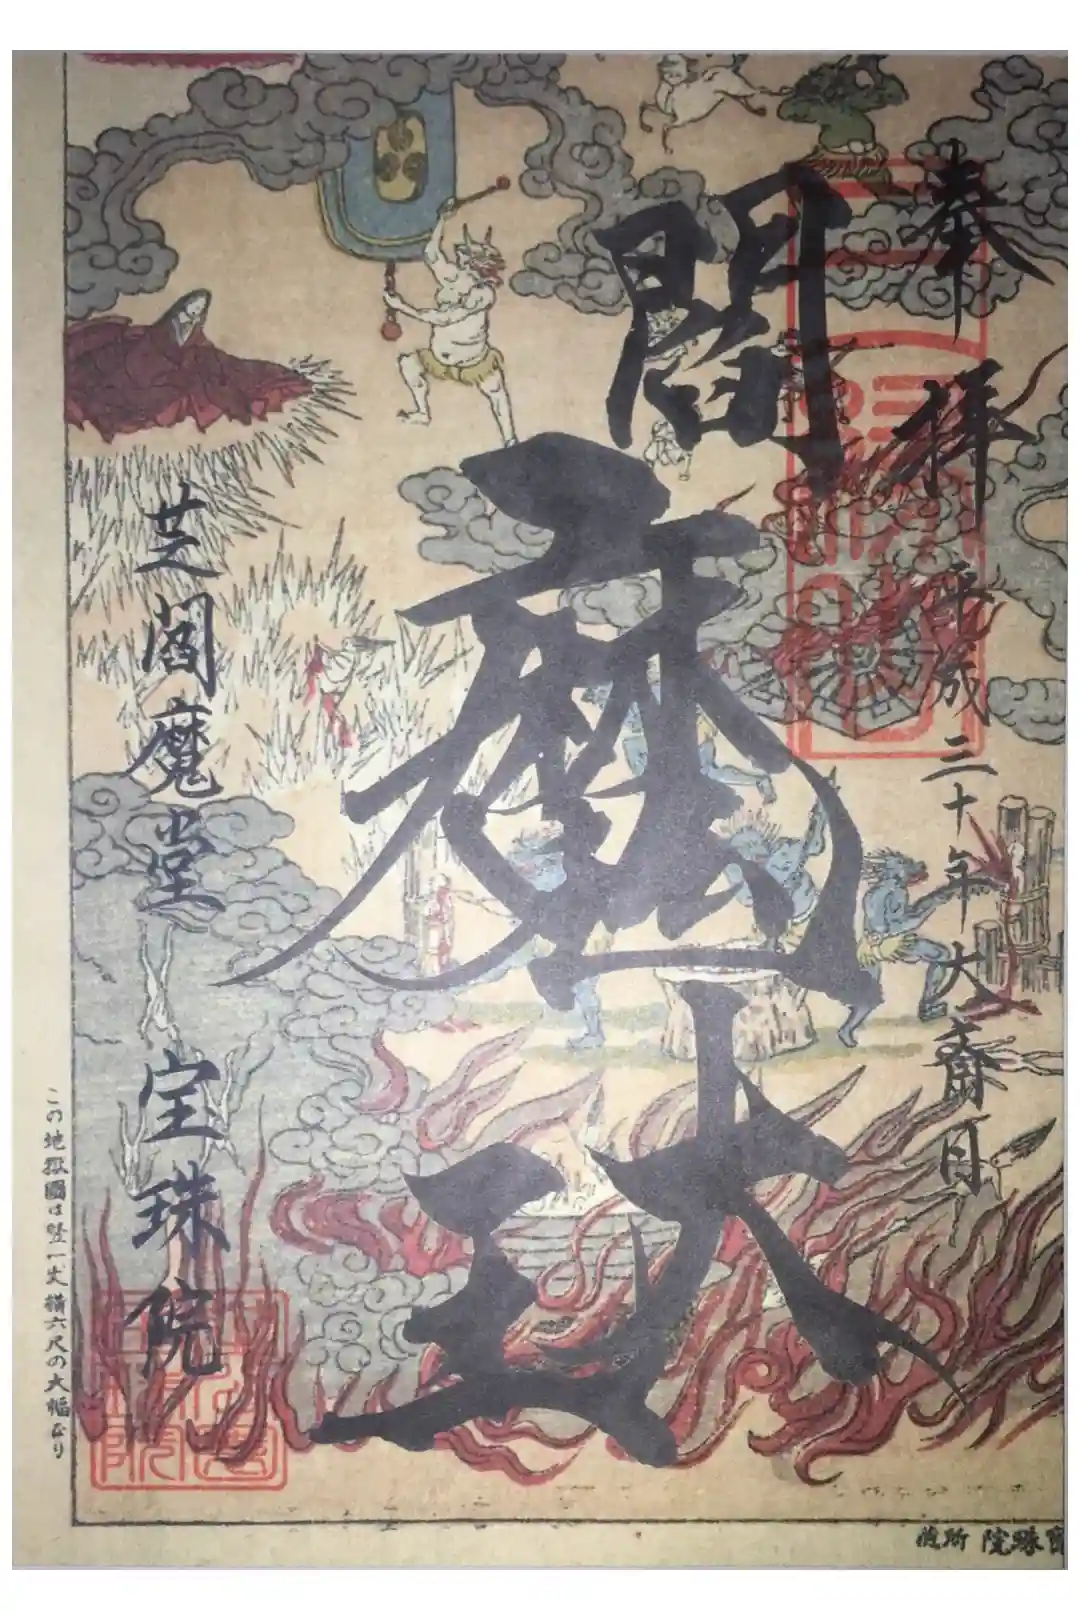 奉拝 平成三十年大齋日
閻魔大王
芝閻魔堂 宝珠院
この地獄圖は竪一丈横六尺の大幅なり
寶珠院所蔵